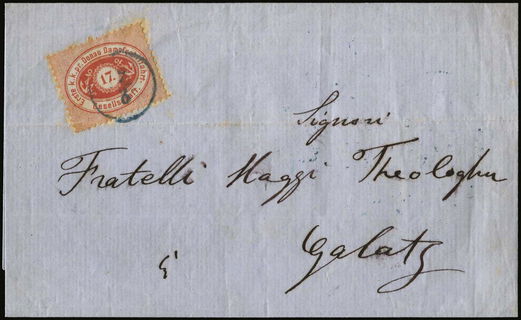 Erste k.k. pr. Donau Dampfschiffahrt
Gesellschaft.
17.
Signori
Fratelli Maggi Theologhu
Galatz